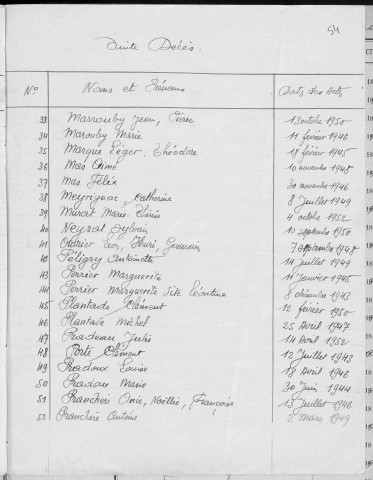 54
Suite Décès.
Nos Noms et Prénoms Dates des Actes
33 Marrouby Jean, Pierre 13 octobre 1950
34 Marouby Marie 11 février 1946
35 Marque Léger, Théodore 18 février 1945
36 Mas Aimé 10 novembre 1948
37 Mas Félix 20 novembre 1946
38 Meyrignac, Catherine 8 Juillet 1949
39 Murat Marie 4 octobre 1952
40 Neyrat Sylvain 10 septembre 1950
41 Henri, Germain 7 septembre 1948
42 Péligry Antoinette 14 Juillet 1949
43 Perrier Marguerite 11 Janvier 1945
44 Perrier Marguerite dite Léontine 8 décembre 1943
45 Plantade Clément 12 février 1950
46 Plantade Michel 25 Avril 1947
47 Pradeau Julie 14 Avril 1952
48 Porte Clément 12 Juillet 1943
49 Pradoux Louise 18 Avril 1946
50 Pradoux Marie 30 Juin 1944
51 Pranchère Noëllie, Françoise 13 Juillet 1946
52 Pranchère Antoine 2 mars 1949